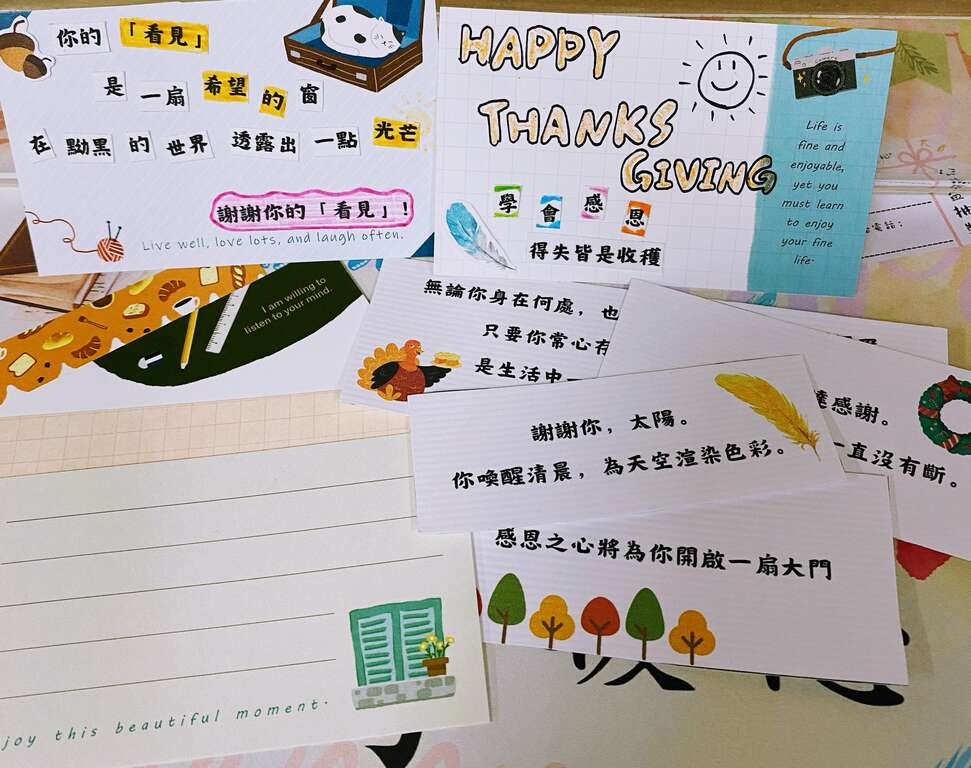 你的「看見」
是一扇希望的窗
在黝黑的世界 透露出一點光芒
謝謝你的「看見」!
Live well, love lots, and laugh often.
HAPPY
THANKS
GIVING
學會感恩
得失皆是收穫
Life is
fine and
enjoyable,
yet you
must learn
to enjoy
your fine
life.
電話:
I am willing to
listen to your mind.
無論你身在何處,也
只要你常心存
是生活中一
謝謝你,太陽。
你喚醒清晨,為天空渲染色彩。
感謝。
一直沒有斷。
感恩之心將為你開啟一扇大門
joy this beautiful moment.